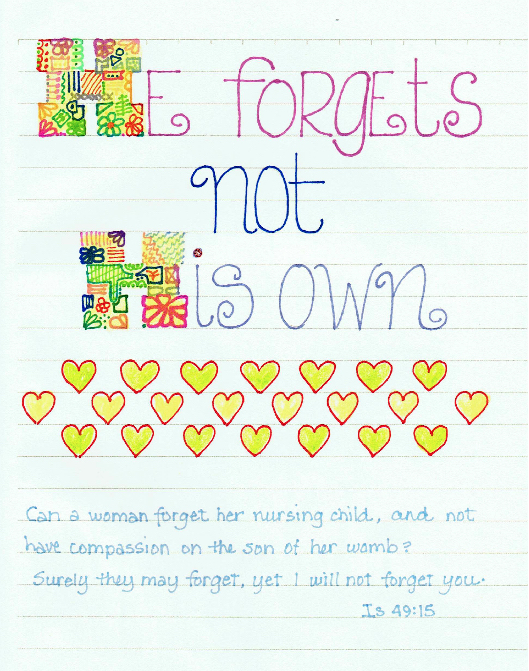 HE forgEts
not
His own
Can a woman forget her nursing child, and not
have compassion on the son of her womb?
Surely they may forget, yet I will not forget you.
Is 49:15